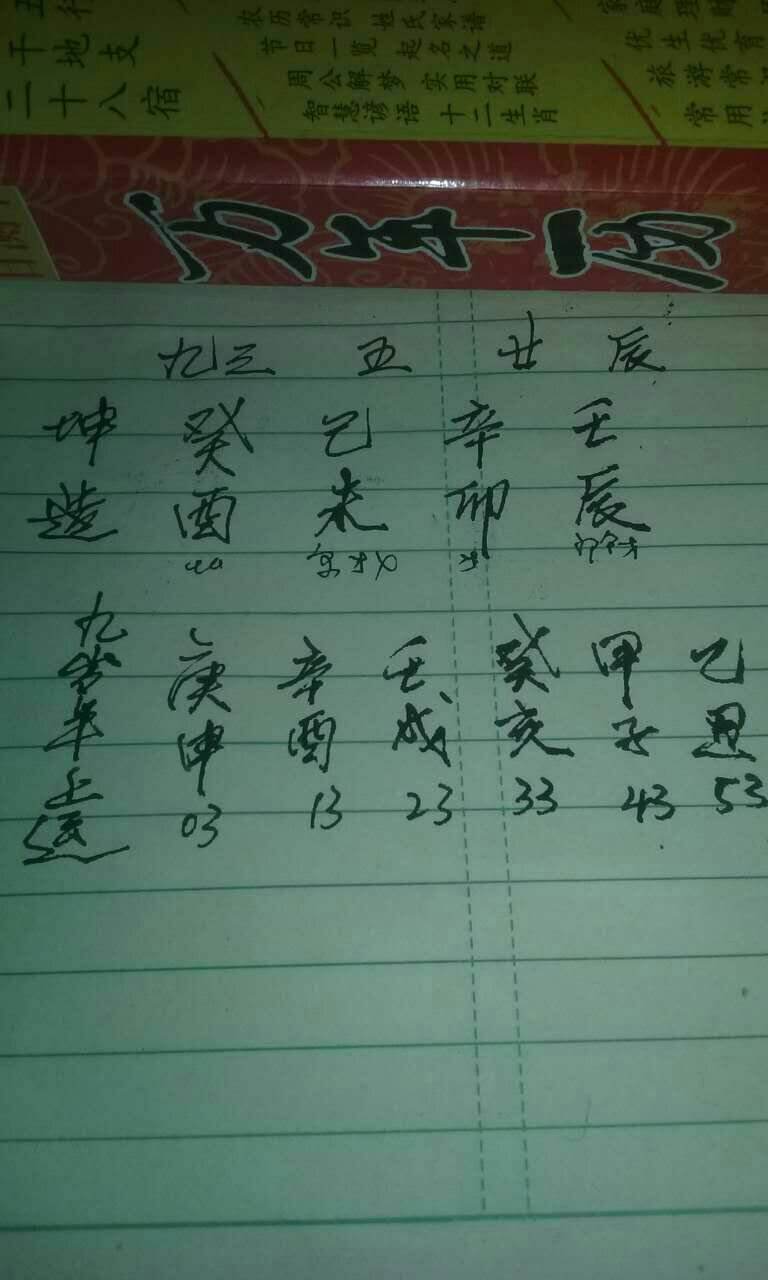 农历常识 姓氏家谱
节日一览 起名之道
周公解梦 实用对联
智慧谚语 十二生肖
干地支
二十八宿
优生优育
旅游常
常用
万年历
九三 五 廿 辰
坤造 癸酉 己未 辛卯 壬辰
九岁半上运 庚申 辛酉 壬戌 癸亥 甲子 乙丑
03 13 23 33 43 53